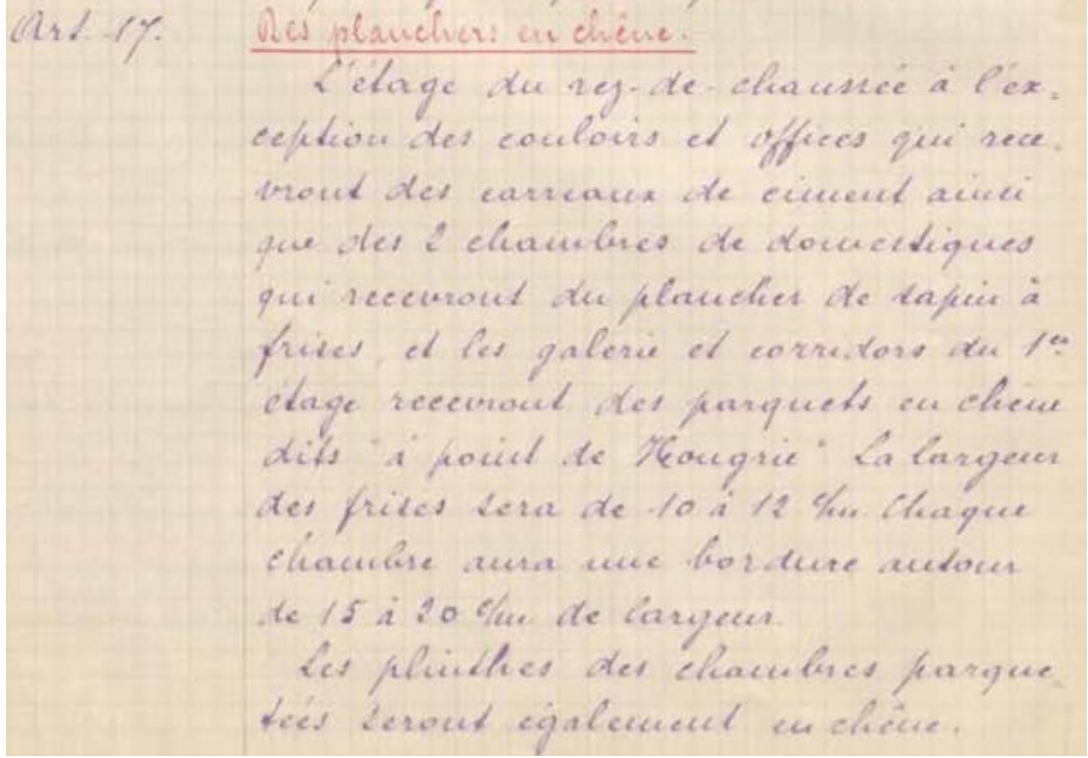 Art. 17. Des planchers en chêne.
L'étage du rez-de-chaussée à l'ex=
ception des couloirs et offices qui rece-
vront des carreaux de ciment ainsi
que des 2 chambres de domestiques
qui recevront du plancher de sapin à
frises, et les galerie et corridors du 1er
étage recevront des parquets en chêne
dits "à point de Hongrie" La largeur
des frises sera de 10 à 12 c/m. Chaque
chambre aura une bordure autour
de 15 à 20 c/m de largeur.
Les plinthes des chambres parque-
tées seront également en chêne.